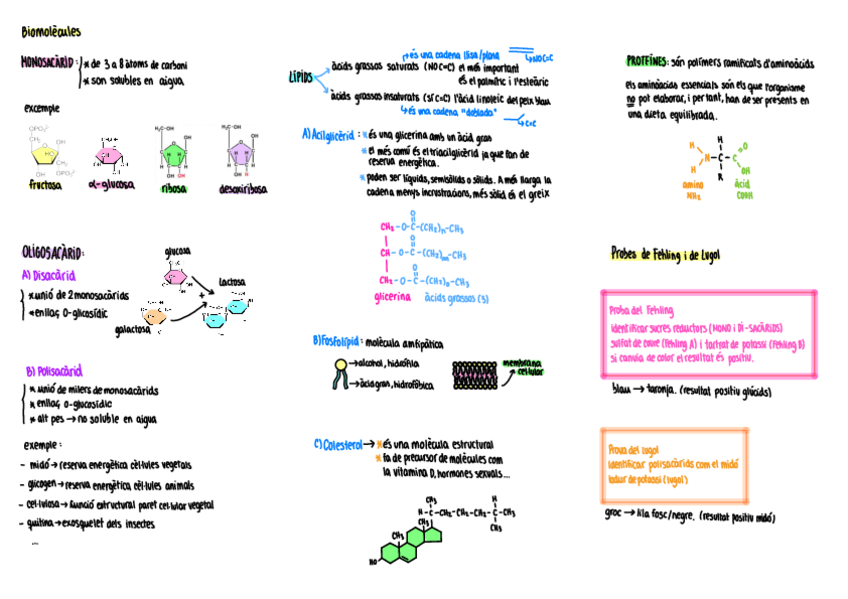 Biomolècules
MONOSACÀRID:
* de 3 a 8 àtoms de carboni
* son solubles en aigua
excemple
fructosa
α-glucosa
ribosa
desoxiribosa
OLIGOSACÀRID:
A) Disacàrid
* unió de 2 monosacàrids
* enllaç O-glicosídic
glucosa
galactosa
+
lactosa
B) Polisacàrid
* unió de milers de monosacàrids
* enllaç O-glucosídic
* alt pes → no soluble en aigua
exemple:
- midó → reserva energètica cèl·lules vegetals
- glicogen → reserva energètica cèl·lules animals
- cel·lulosa → funció estructural paret cel·lular vegetal
- quitina → exosquelet dels insectes
...
LÍPIDS
és una cadena llisa/plana
NO C=C
àcids grassos saturats (NO C=C) el més important
és el palmític i l'esteàric
àcids grassos insaturats (SÍ C=C) l'àcid linoleic del peix blau
és una cadena "doblada"
C=C
A) Acilglicèrid: * és una glicerina amb un àcid gras
* el més comú és el triacilglicèrid ja que fan de
reserva energètica.
* poden ser líquids, semisòlids o sòlids. A més llarga la
cadena menys incrustacions, més sòlid és el greix
O
CH2-O-C-(CH2)n-CH3
O
CH-O-C-(CH2)m-CH3
O
CH2-O-C-(CH2)n-CH3
glicerina
àcids grassos (3)
B) Fosfolípid: molècula amfipàtica
→ alcohol, hidròfila
→ àcid gras, hidrofòbica
membrana
cel·lular
C) Colesterol → * és una molècula estructural
* fa de precursor de molècules com
la vitamina D, hormones sexuals...
CH3
H
H-C-CH2-CH2-CH2-C-CH3
CH3
CH3
CH3
HO
PROTEÏNES: són polímers ramificats d'aminoàcids
els aminoàcids essencials són els que l'organisme
no pot elaborar, i per tant, han de ser presents en
una dieta equilibrada.
H
H
O
N-C-C
H
OH
R
amino
NH2
àcid
COOH
Probes de Fehling i de Lugol
Proba del Fehling
identificar sucres reductors (MONO i DI-SACÀRIDS)
sulfat de coure (Fehling A) i tartrat de potassi (Fehling B)
si canvia de color el resultat és positiu.
blau → taronja. (resultat positiu glúcids)
Prova del lugol
Identificar polisacàrids com el midó
Iodur de potassi (lugol)
groc → lila fosc/negre. (resultat positiu midó)